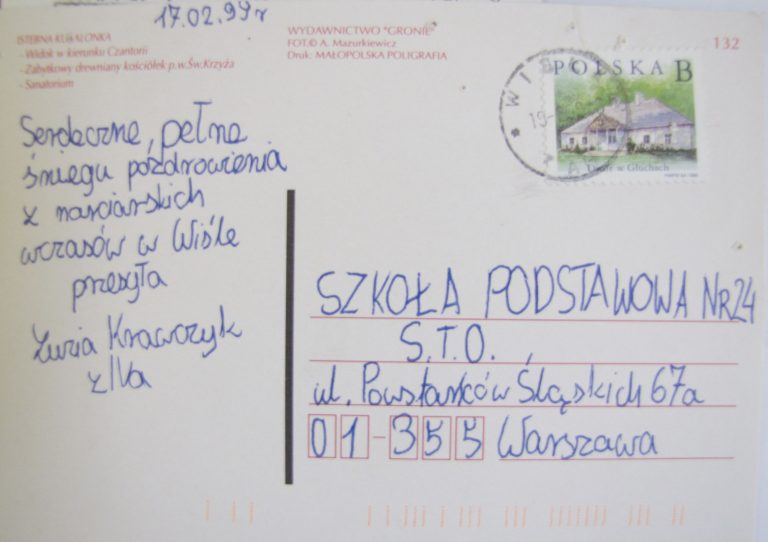 17.02.99r
ISTEBNA KUBALONKA
- Widok w kierunku Czantorii
- Zabytkowy drewniany kościółek p.w.Św.Krzyża
- Sanatorium
WYDAWNICTWO "GRONIE"
FOT.© A. Mazurkiewicz
Druk: MAŁOPOLSKA POLIGRAFIA
132
POLSKA B
Dwór w Głuchach
WISŁA
19
Serdeczne, pełne
śniegu pozdrowienia
z narciarskich
wczasów w Wiśle
przesyła
Zuzia Krawczyk
z IVa
SZKOŁA PODSTAWOWA NR24
S.T.O.
ul. Powstańców Śląskich 67a
01-355 Warszawa